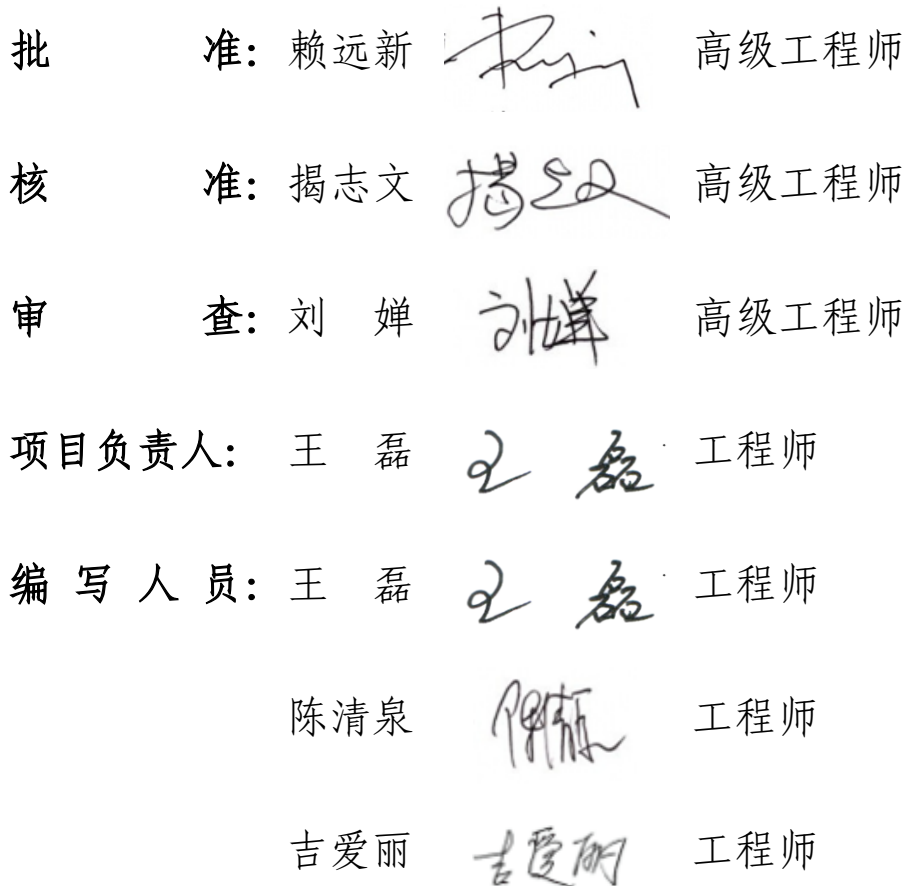 批 准：赖远新 高级工程师
核 准：揭志文 揭志文 高级工程师
审 查：刘 婵 刘婵 高级工程师
项目负责人：王 磊 王 磊 工程师
编 写 人 员：王 磊 王 磊 工程师
陈清泉 工程师
吉爱丽 吉爱丽 工程师